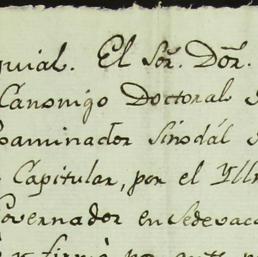 quial. El Sor. Dor.
Canonigo Doctoral
xaminador Sinodál
Capitular, por el Yll
Governador en Sedevac
y firmó